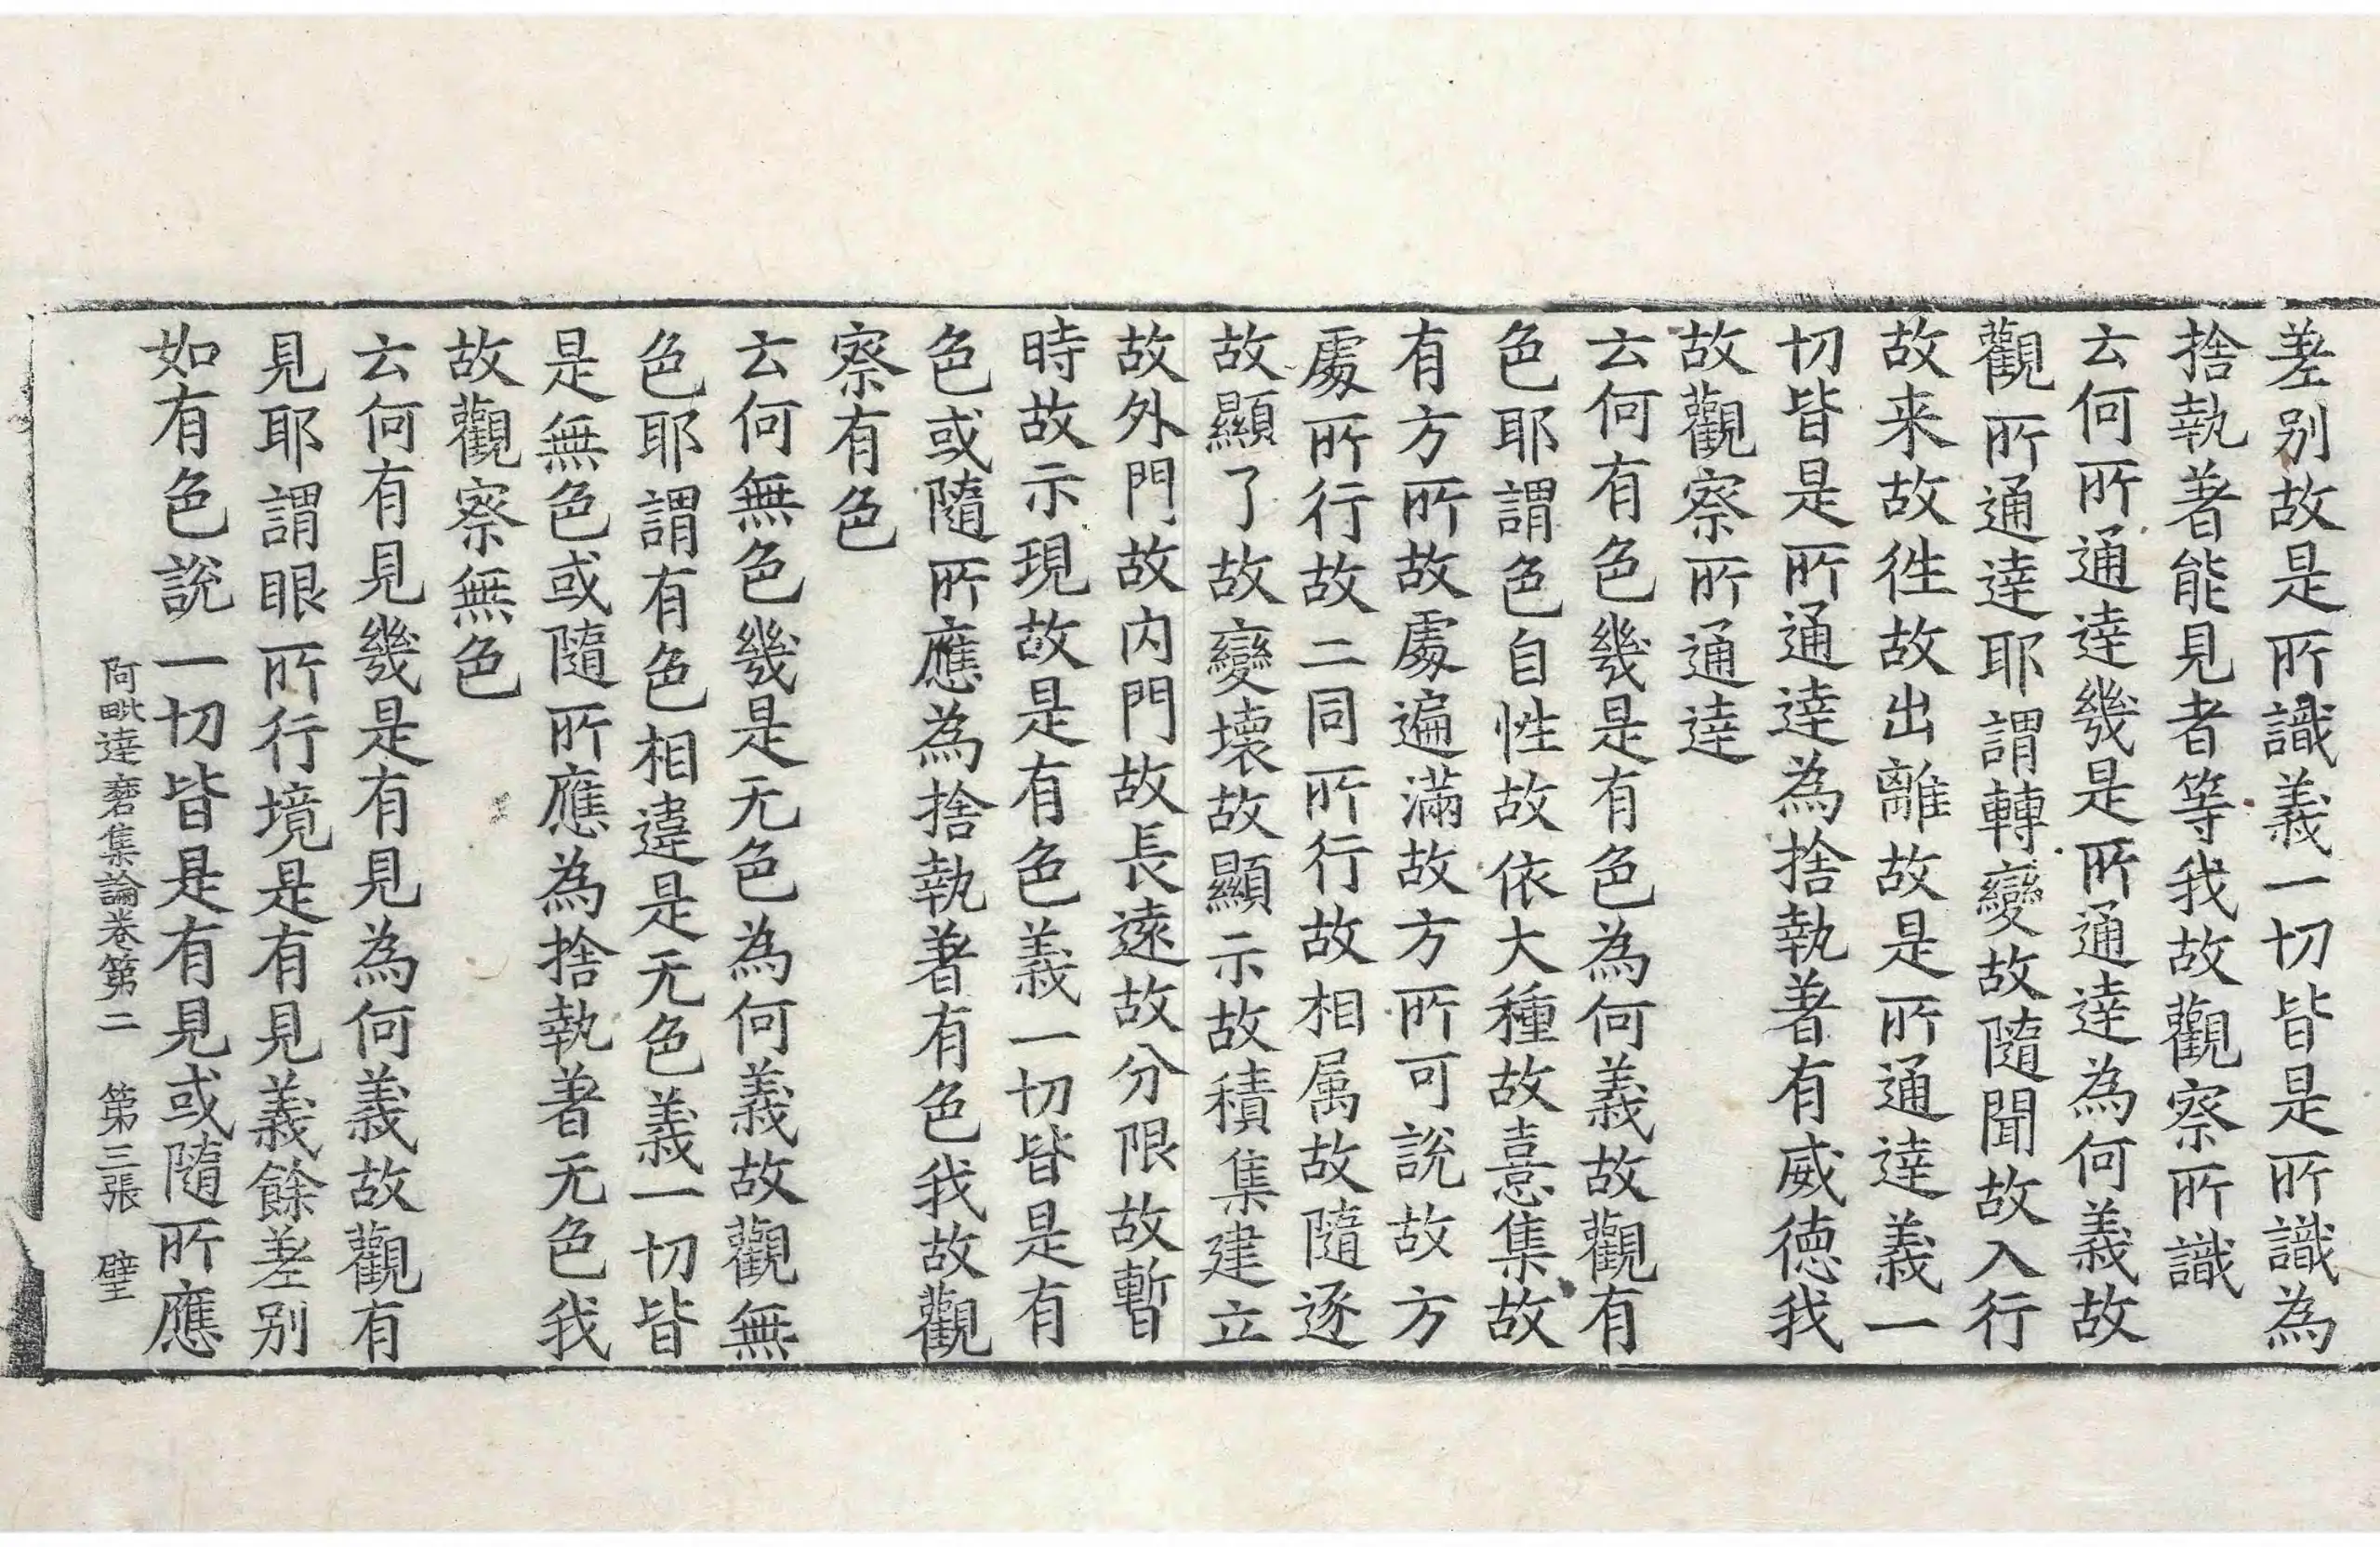 差别故是所識義一切皆是所識為
捨執著能見者等我故觀察所識
云何所通達幾是所通達為何義故
觀所通達耶謂轉變故隨聞故入行
故来故徃故出離故是所通達義一
切皆是所通達為捨執著有威徳我
故觀察所通達
云何有色幾是有色為何義故觀有
色耶謂色自性故依大種故憙集故
有方所故處遍滿故方所可說故方
處所行故二同所行故相属故隨逐
故顯了故變壞故顯示故積集建立
故外門故内門故長遠故分限故暫
時故示現故是有色義一切皆是有
色或隨所應為捨執著有色我故觀
察有色
云何無色幾是无色為何義故觀無
色耶謂有色相違是无色義一切皆
是無色或隨所應為捨執著无色我
故觀察無色
云何有見幾是有見為何義故觀有
見耶謂眼所行境是有見義餘差别
如有色說一切皆是有見或隨所應
阿毗達磨集論卷第二　第三張　璧